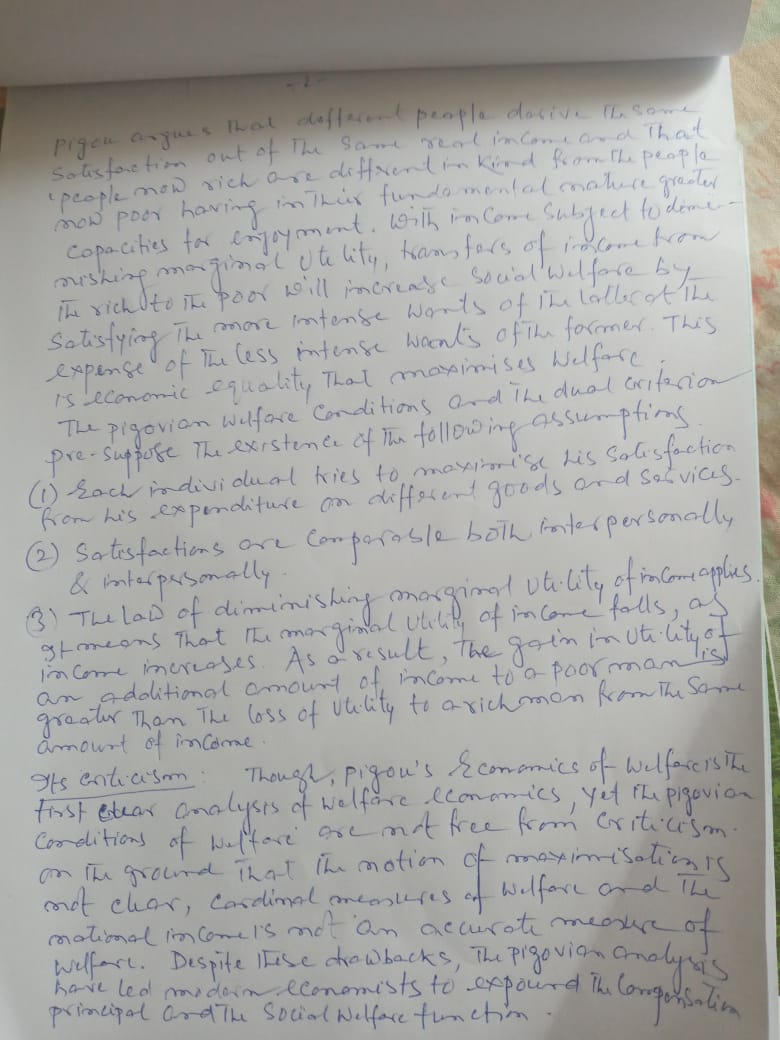 -2-
Pigou argues that different people derive the same
Satisfaction out of the same real income and that
'people now rich are different in kind from the people
now poor having in their fundamental nature greater
Capacities for enjoyment. With income Subject to demi-
nishing marginal Utility, transfers of income from
the rich to the poor will increase Social Welfare by
Satisfying the more intense wants of the latter at the
expense of the less intense wants of the former. This
is economic equality that maximises welfare.
The pigovian welfare Conditions and the dual criterion
pre-suppose the existence of the following assumptions.
(1) Each individual tries to maximise his Satisfaction
from his expenditure on different goods and services.
(2) Satisfactions are Comparable both interpersonally
& interpersonally.
(3) The law of diminishing marginal Utility of income applies.
It means that the marginal Utility of income falls, as
income increases. As a result, the gain in Utility of
an additional amount of income to a poor man is
greater than the loss of Utility to a rich man from the same
amount of income.
Its criticism : Though, pigou's Economics of Welfare is the
first clear analysis of Welfare economics, yet the pigovian
Conditions of Welfare are not free from Criticism.
on the ground that the notion of maximisation is
not clear, Cardinal measures of Welfare and the
national income is not an accurate measure of
Welfare. Despite these drawbacks, the pigovian analysis
have led modern economists to expound the Compensation
principal and the Social Welfare function.